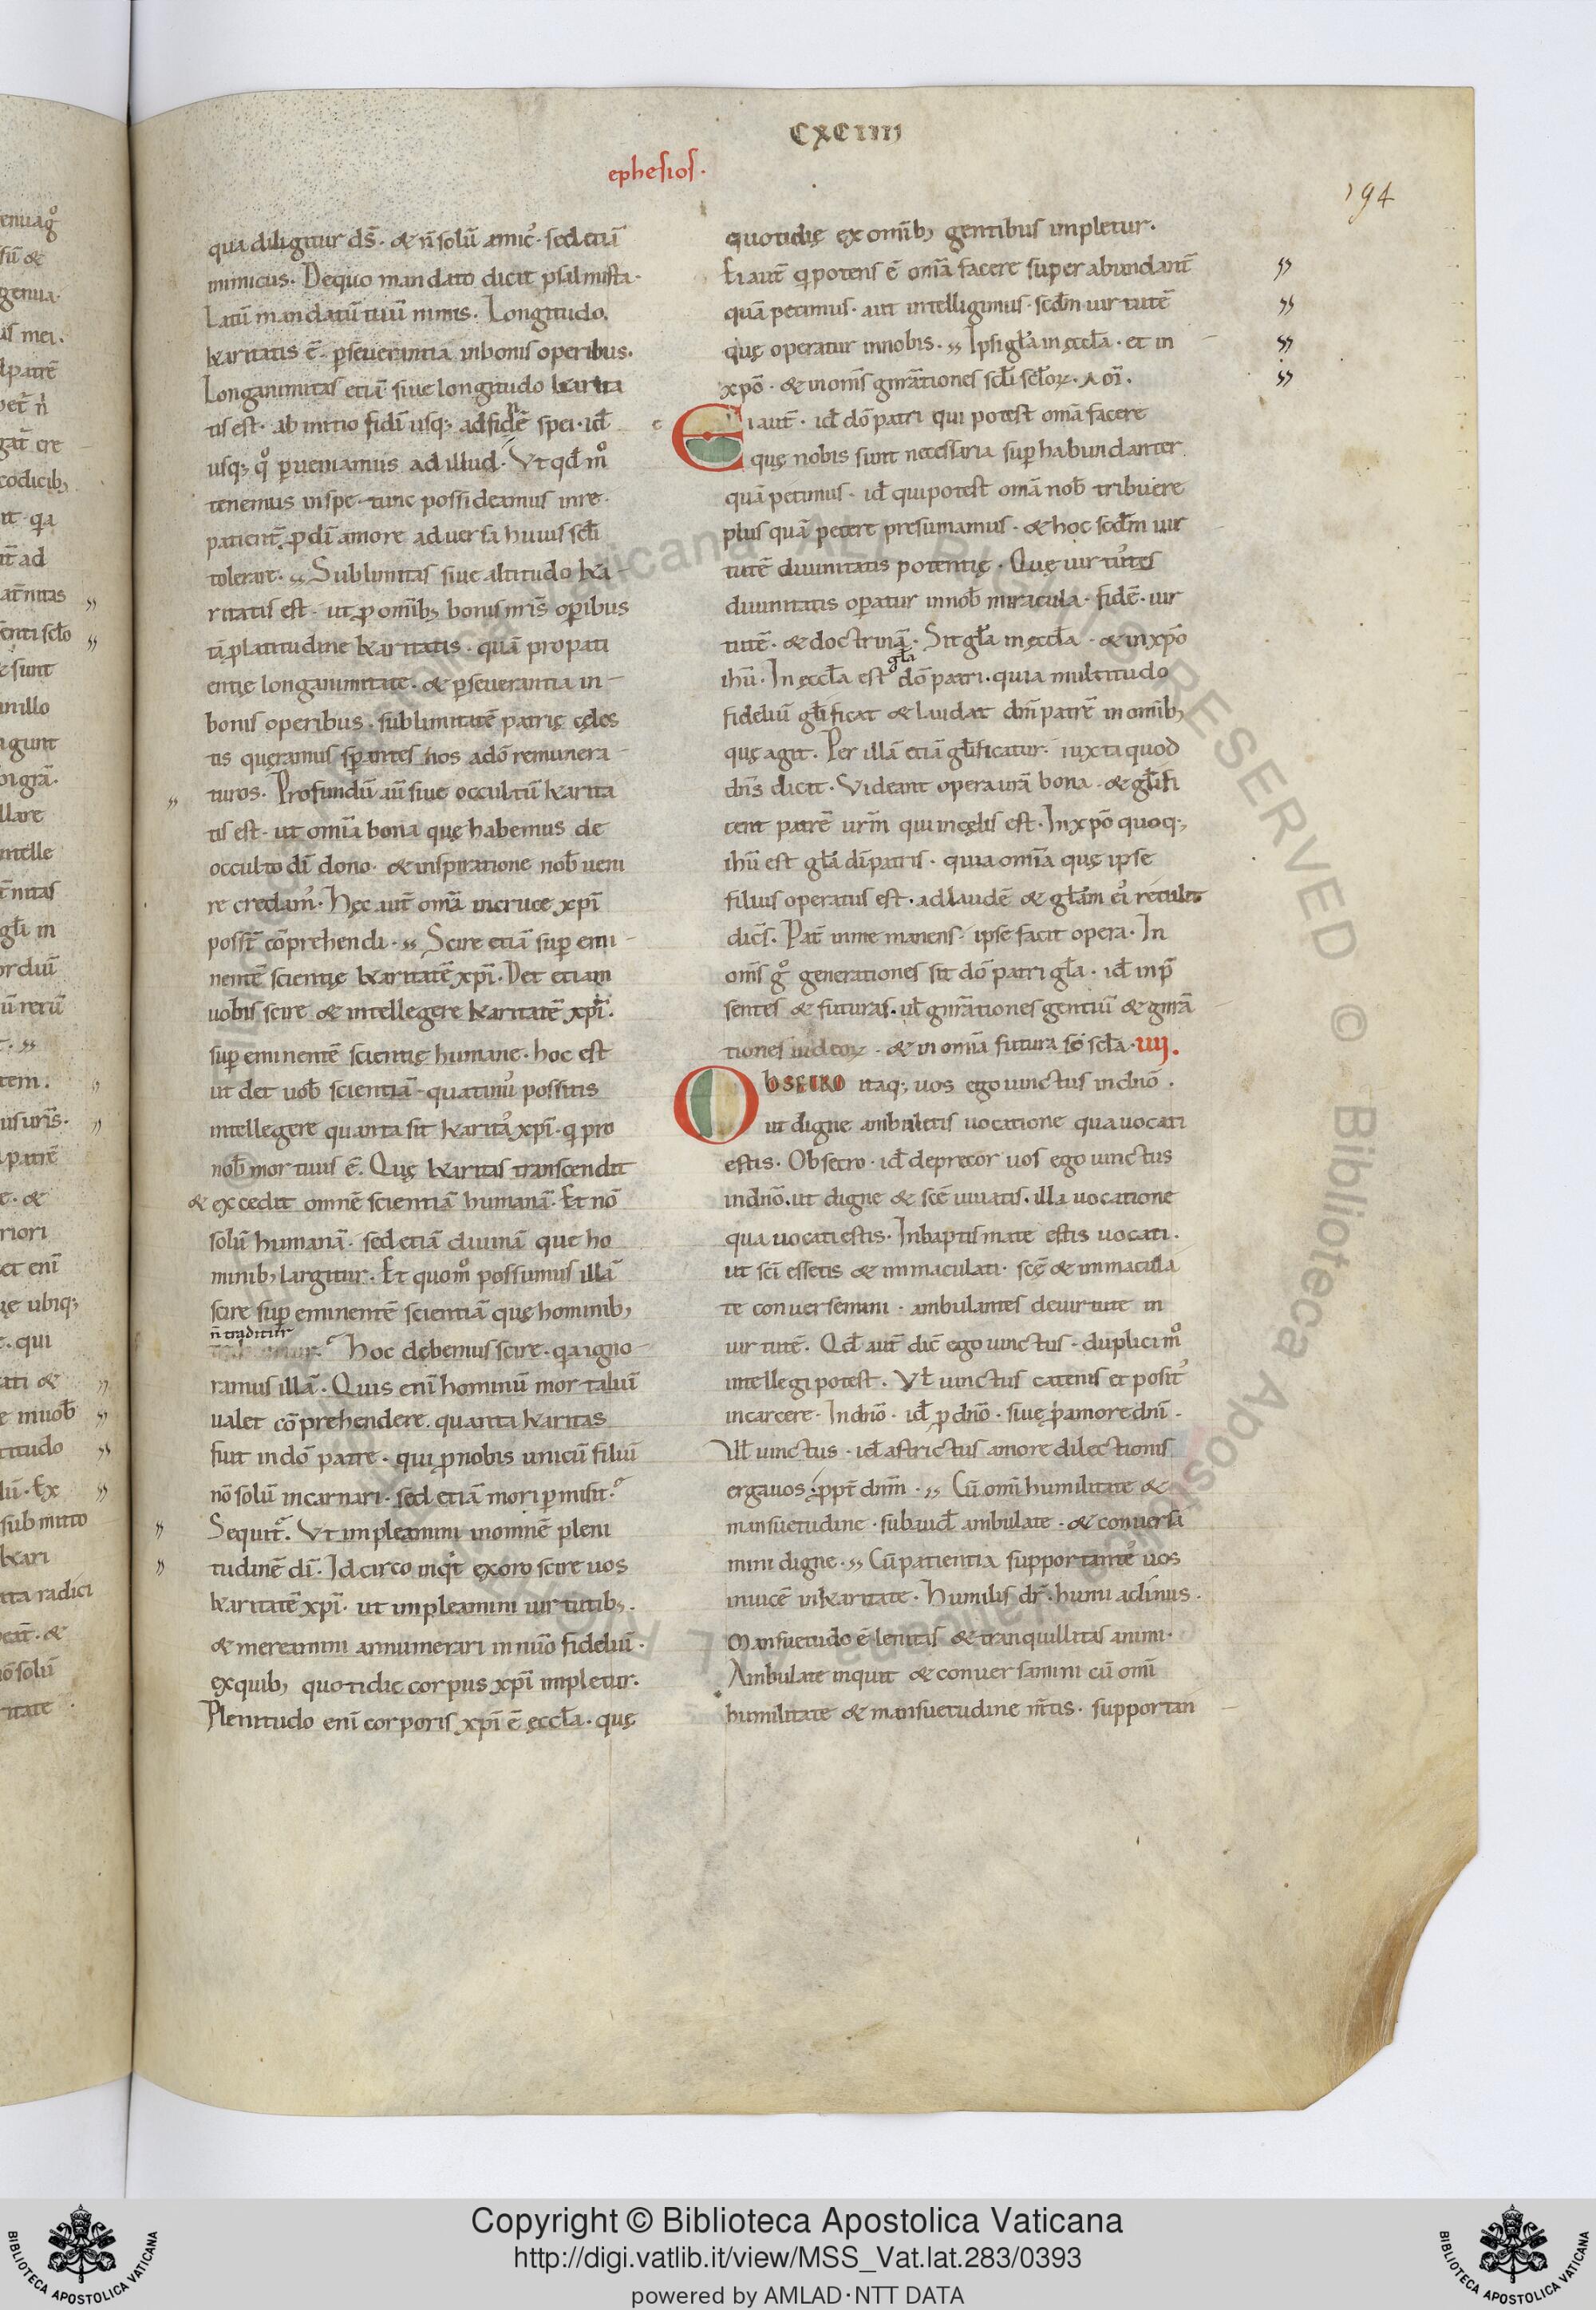 CXCIIII
ephesios.
194
qua diligitur ds̄. & n̄ solū amic᾿. sed etiā
inimicus. De quo mandato dicit psalmista.
Latū mandatū tuū nimis. Longitudo.
karitatis ē. pseuerantia in bonis operibus.
Longanimitas etiā siue longitudo karita
tis est. ab initio fidī usq; ad finē spei. id̄
usq; qͦ pueniamus ad illud. Vt qd̄ mͦ
tenemus in spe. tunc possideamus in re.
patient̄. p dī amore aduersa huius sclī
tolerare. Sublimitas siue altitudo ka
ritatis est. ut p omīb; bonis nr̄is opibus
tā platitudine karitatis. quā pro pati
entię longanimitate. & pseuerantia in
bonis operibus. sublimitatē patrię cęles
tis queramus sperantes nos a dō remunera
turos. Profundū aū siue occultū karita
tis est. ut omīa bona quę habemus de
occulto dī dono. & inspiratione nob̄ ueni
re credam᾿. Hęc aūt omīa in cruce xpī
poss̄t cōprehendi. Scire etiā sup emi
nentē scientię karitatē xpī. Det etiam
uobis scire & intellegere karitatē xpī.
sup eminentē scientię humane. hoc est
ut det uob̄ scientiā. quatinus possitis
intellegere quanta sit karitas xpī. q pro
nob̄ mortuus ē. Quę karitas transcendit
& excedit omnē scientiā humanā. Et nō
solū humanā. sed etiā diuinā que ho
minib; largitur. Et quomͦ possumus illā
scire sup eminentē scientiā quę hominib;
n̄ traditur
Hoc debemus scire. qa igno
ramus illā. Quis enī hominū mortaliū
ualet cōprehendere. quanta karitas
fuit in dō patre. qui p nobis unicū filiū
nō solū incarnari. sed etiā mori pmisit.
Sequit᾿. Vt impleamini in omnē pleni
tudinē dī. Idcirco inqt exoro scire uos
karitatē xpī. ut impleamini uirtutib;.
& mereamini annumerari in nuō fideliū.
ex quib; quotidie corpus xpī impletur.
Plenitudo enī corporis xpī ē ęccla. quę
quotidię ex omīb; gentibus impletur.
Ei aut̄ q potens ē omīa facere superabundant̄
quā petimus. aut intelligimus. scdm uirtutē
quę operatur in nobis. Ipsi glā in ęccla. et in
xpō. & in omīs gnrātiones scli sclōꝝ. Am̄.
Ei aut̄. id̄ dō patri qui potest omīa facere
quę nobis sunt necessaria suphabundanter
quā petimus. id̄ qui potest omīa nob̄ tribuere
plus quā petere presumamus. & hoc scdm uir
tutē diuinitatis potentię. Quę uirtutes
diuinitatis opatur in nob̄ miracula. fidē. uir
tutē. & doctrinā. Sit glā in ęccla. & in xpō
ihū. In ęccla est glā dō patri. quia multitudo
fideliū glīficat & laudat dm̄ patrē in omīb;
quę agit. Per illā etiā glīficatur. iuxta quod
dn̄s dicit. Videant opera urā bona. & glīfi
cent patrē urm̄ qui in cęlis est. In xpō quoq;
ihū est glā dī patris. quia omīa quę ipse
filius operatus est. ad laudē & glām ei᾿ retulit
dicēs. Pat̄ in me manens. ipse facit opera. In
omīs gͦ generationes sit dō patri glā. id̄ in p̄
sentes & futuras. ul̄ gnrātiones gentiū & gnrā
tiones iudeoꝝ. & in omīa futura sc̄o scla. IIII.
Obsecro itaq; uos ego uinctus in dn̄o.
ut digne ambuletis uocatione qua uocati
estis. Obsecro. id̄ deprecor uos ego uinctus
in dn̄o. ut digne & scē uiuatis. illa uocatione
qua uocati estis. In baptismate estis uocati.
ut scī essetis & immaculati. scē & immacula
te conuersemini. ambulantes de uirtute in
uirtutē. Qd̄ aut̄ dic̄ ego uinctus. duplici mͦ
intellegi potest. Vl̄ uinctus catenis et posit᾿
in carcere. In dn̄o. id̄ p dn̄o. siuę p amore dn̄i.
Vl̄ uinctus. id̄ astrictus amore dilectionis
erga uos. ppt̄ dnm̄. Cū omī humilitate &
mansuetudine. subaud̄ ambulate. & conuersa
mini digne. Cū patientia supportantes uos
inuicē in karitate. Humilis dr̄. humi acliuus.
Mansuetudo ē lenitas & tranquillitas animi.
Ambulate inquit & conuersamini cū omī
humilitate & mansuetudine m̄tis. supportan
Copyright © Biblioteca Apostolica Vaticana
http://digi.vatlib.it/view/MSS_Vat.lat.283/0393
powered by AMLAD·NTT DATA